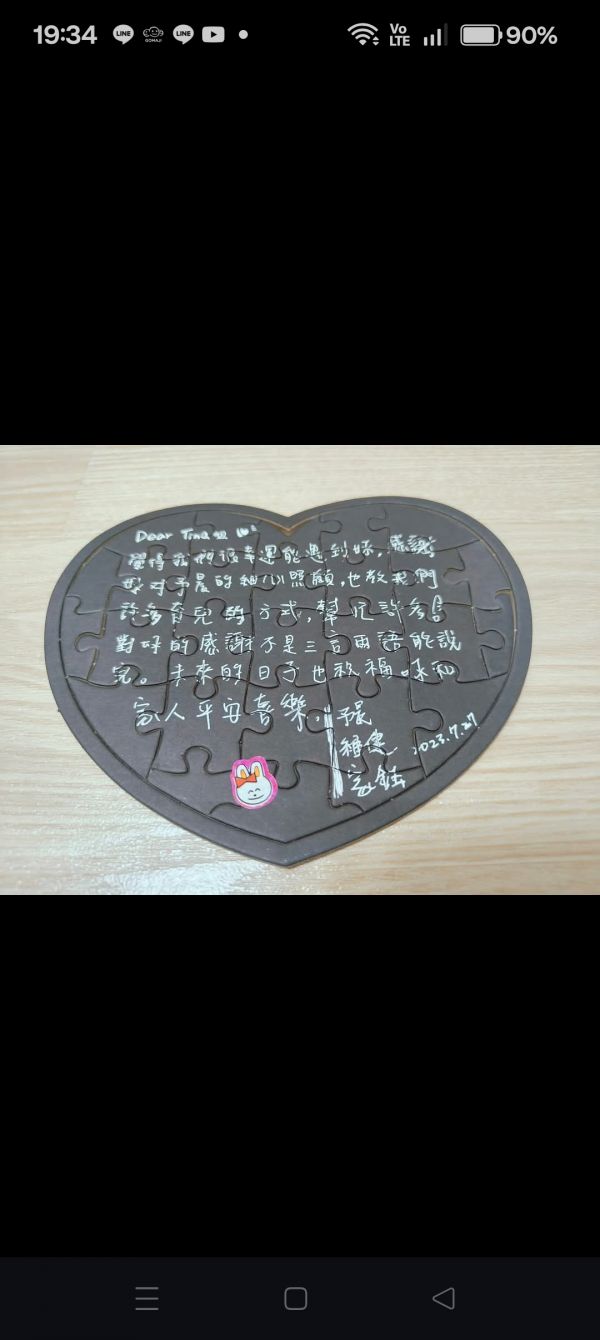 19:34
LINE
GOMAJI
LINE
Vo
LTE
90%
Dear Tina姐
覺得我們很幸運能遇到妳,感謝
妳對予晨的細心照顧,也教我們
許多育兒的方式,幫忙許多!
對妳的感謝不是三言兩語能說
完。未來的日子也祝福妳和
家人平安喜樂。
予晨
2023.7.27